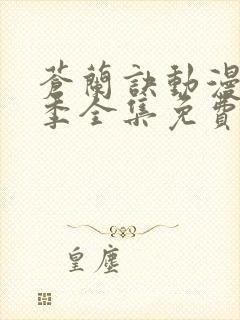 蒼蘭訣動漫
季全集免費
皇塵